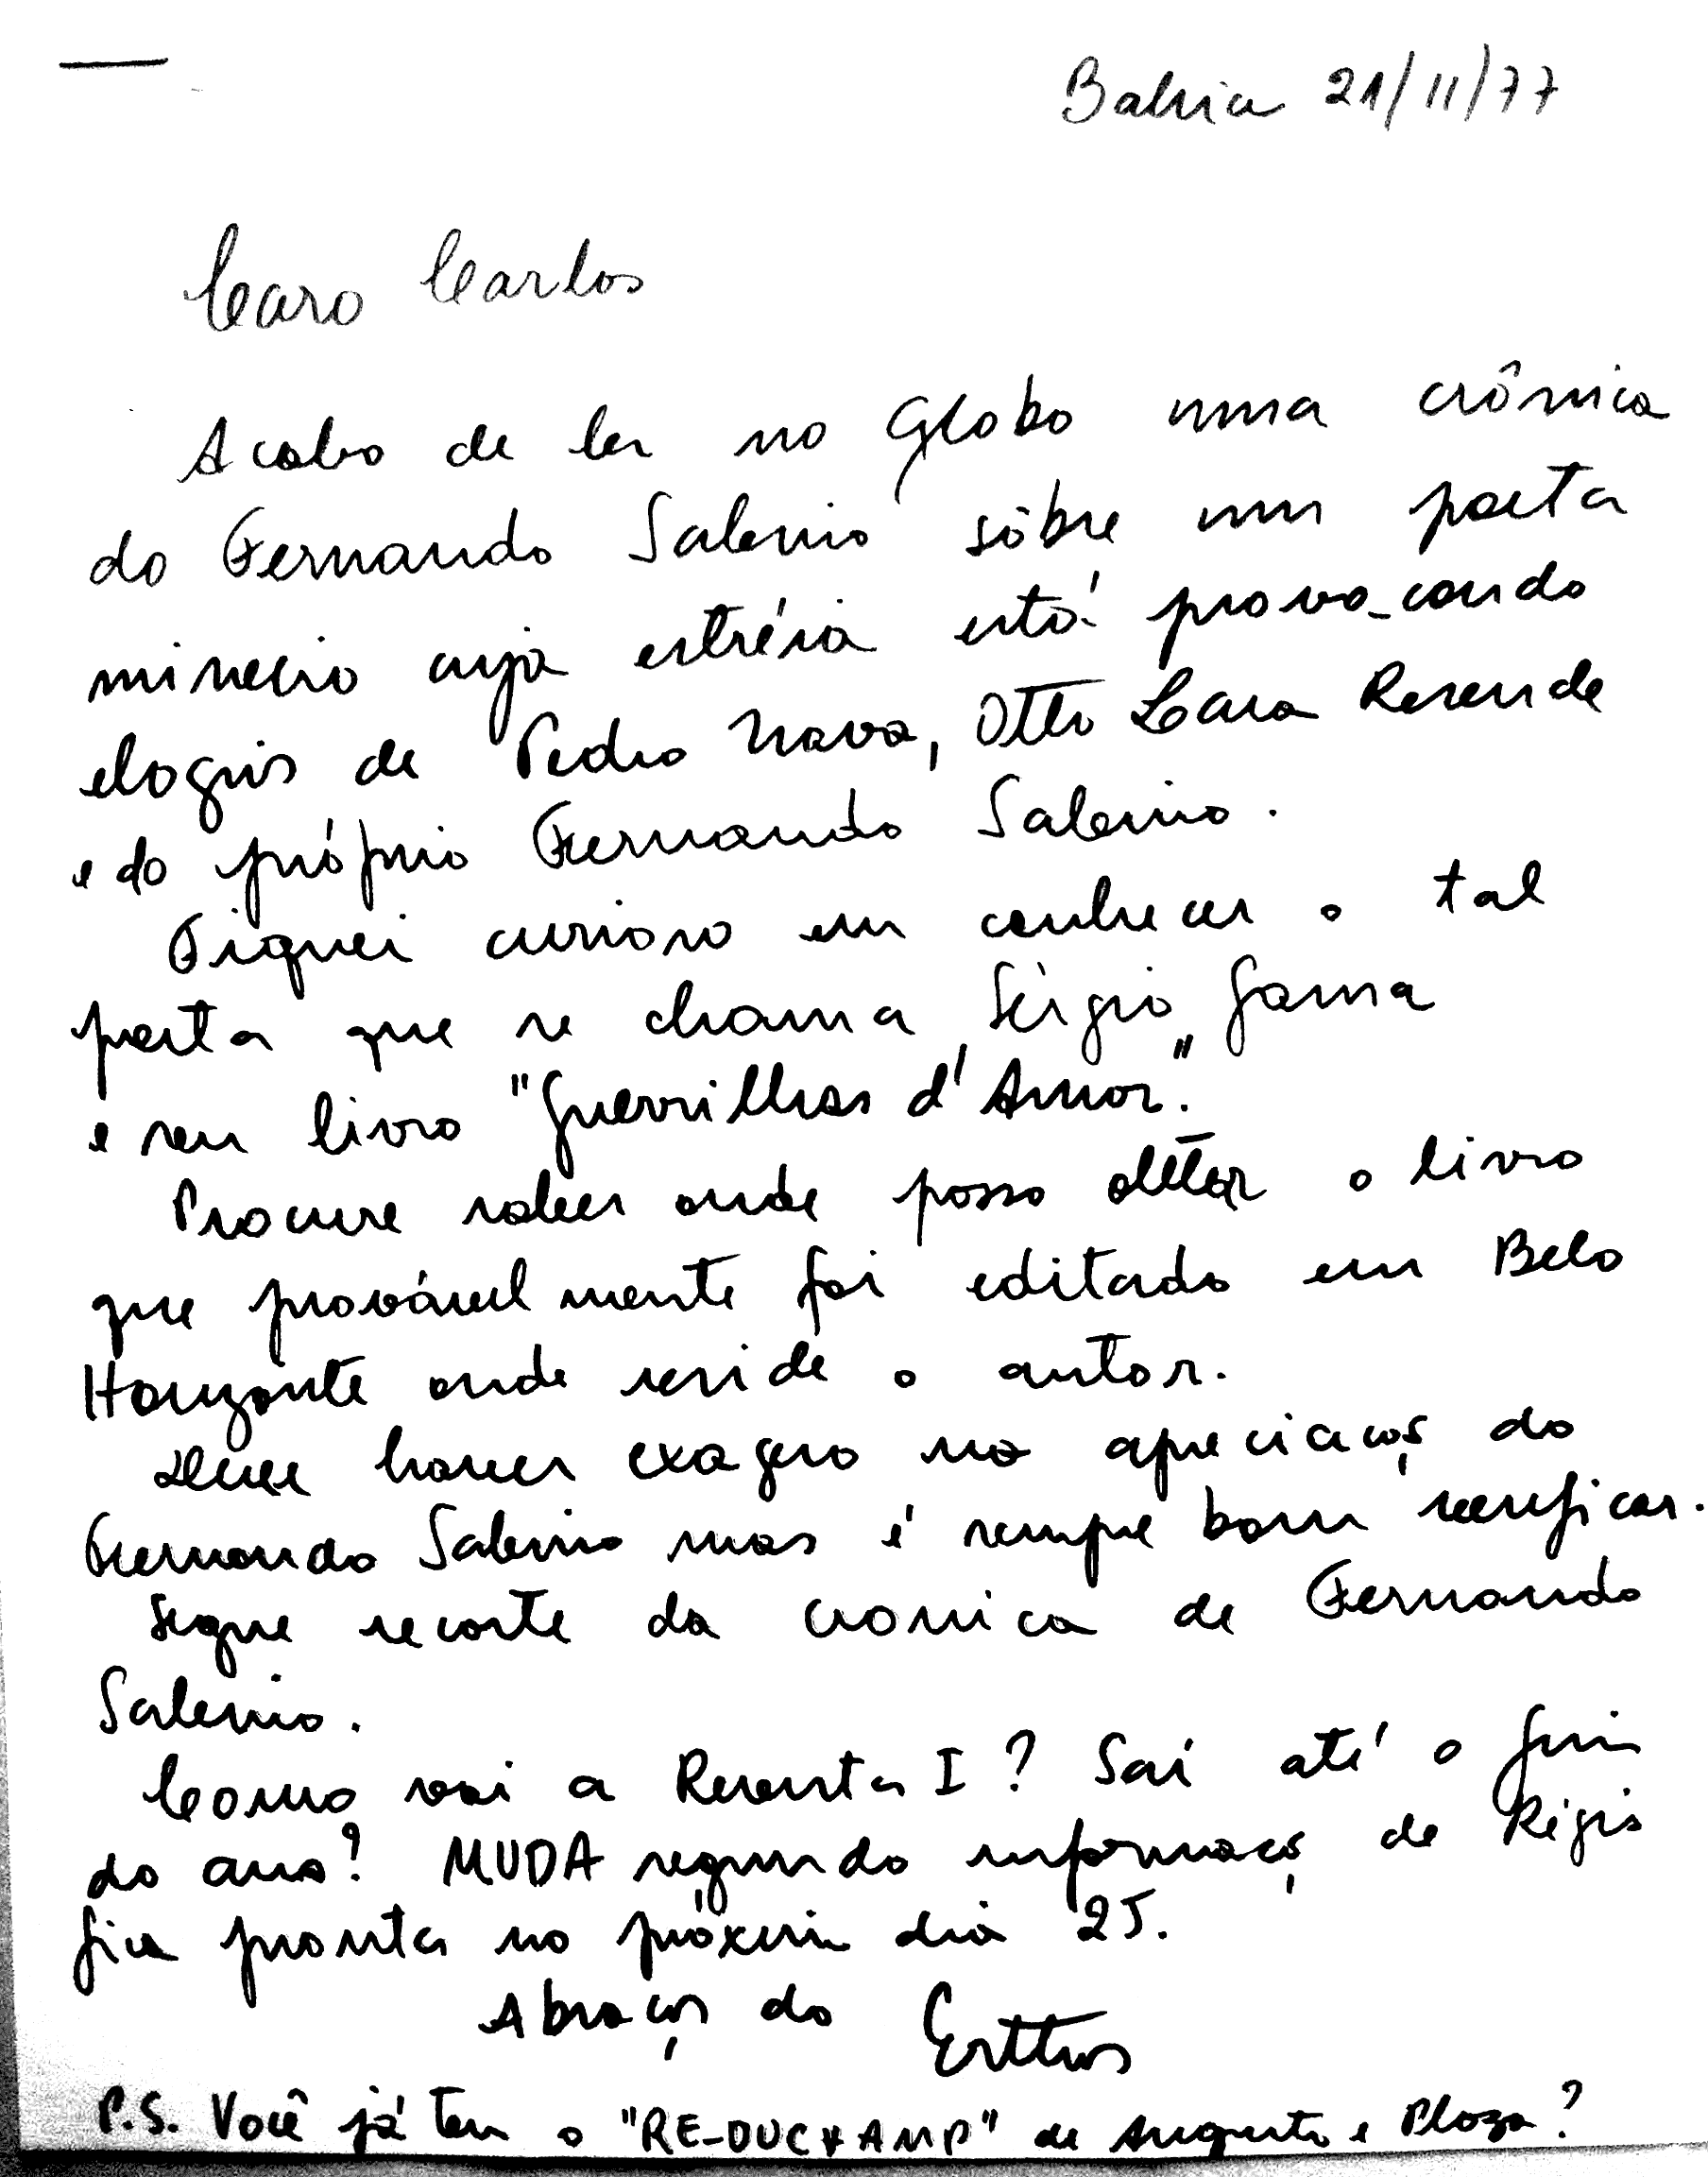 Bahia 21/11/77
Caro Carlos
Acabo de ler no Globo uma crônica
do Fernando Sabino sôbre um poeta
mineiro cuja estréia está provocando
elogios de Pedro Nava, Otto Lara Resende
e do próprio Fernando Sabino.
Fiquei curioso em conhecer o tal
poeta que se chama Sérgio Gama
e seu livro "Guerrilhas d'Amor."
Procure saber onde posso obter o livro
que provávelmente foi editado em Belo
Horizonte onde reside o autor.
Deve haver exagero na apreciação do
Fernando Sabino mas é sempre bom verificar.
Segue recorte da cronica de Fernando
Sabino.
Como vai a Revista I? Sai até o fim
do ano? MUDA segundo informação de Régis
fica pronta no próximo dia 25.
Abraços do Erthos
P.S. Você já tem o "RE-DUCHAMP" de Augusto e Plaza?